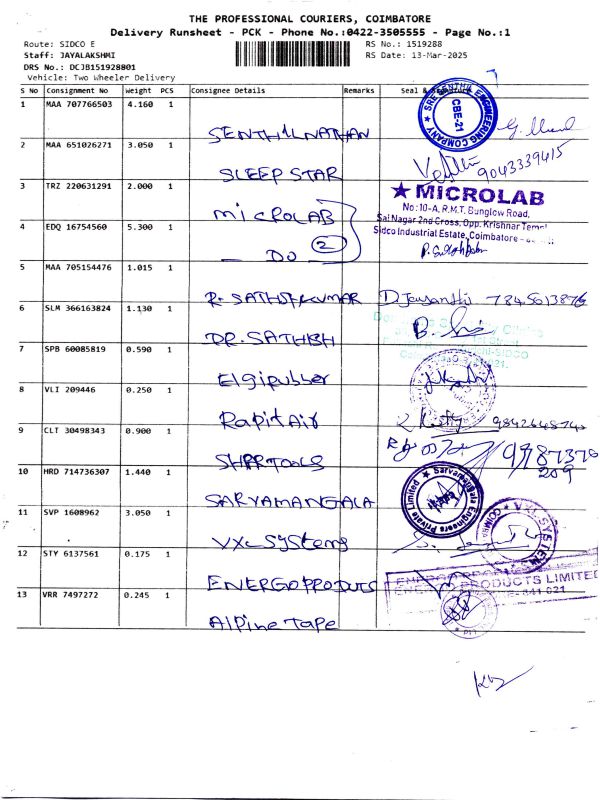 THE PROFESSIONAL COURIERS, COIMBATORE
Delivery Runsheet - PCK - Phone No.:0422-3505555 - Page No.:1
Route: SIDCO E
RS No.: 1519288
Staff: JAYALAKSHMI
RS Date: 13-Mar-2025
DRS No.: DCJB151928801
Vehicle: Two Wheeler Delivery
S No Consignment No Weight PCS Consignee Details Remarks Seal &
1 MAA 707766503 4.160 1 SENTHILNATHAN
SREE SENTHIL ENGINEERING COMPANY
CBE-21
2 MAA 651026271 3.050 1 SLEEP STAR 9043339415
3 TRZ 220631291 2.000 1 MICROLAB
★ MICROLAB
No:10-A, R.M.T. Bunglow Road,
Sai Nagar 2nd Cross, Opp. Krishnar Temple
Sidco Industrial Estate, Coimbatore -
4 EDQ 16754560 5.300 1 — DO — 2
5 MAA 705154476 1.015 1 R. SATHISHKUMAR D Jeysanthi 7845613876
6 SLM 366163824 1.130 1 DR. SATHISH
7 SPB 60085819 0.590 1 Elgirubber
8 VLI 209446 0.250 1 Rapit Air 9842648740
9 CLT 30498343 0.900 1 SHPRTOOLS 9787376
209
10 HRD 714736307 1.440 1 SARVAMANGALA
Sarvamangala Engineers Private Limited
11 SVP 1608962 3.050 1 VXL SYStems
VXL SYSTEM
12 STY 6137561 0.175 1 ENERGOPRODUCTS
PRODUCTS LIMITED
641 021
13 VRR 7497272 0.245 1 Alpine TAPE